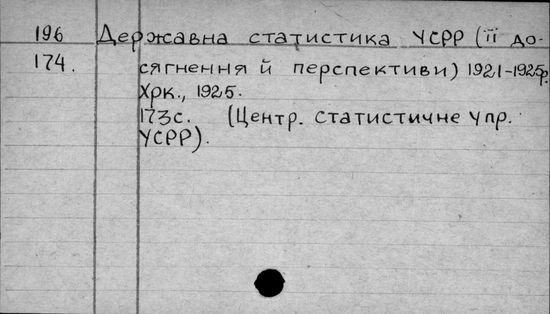 196 Державна статистика УСРР (її до-
174. сягнення й перспективи) 1921-1925р.
Хрк., 1925.
173с. (Центр. статистичне упр.
УСРР).